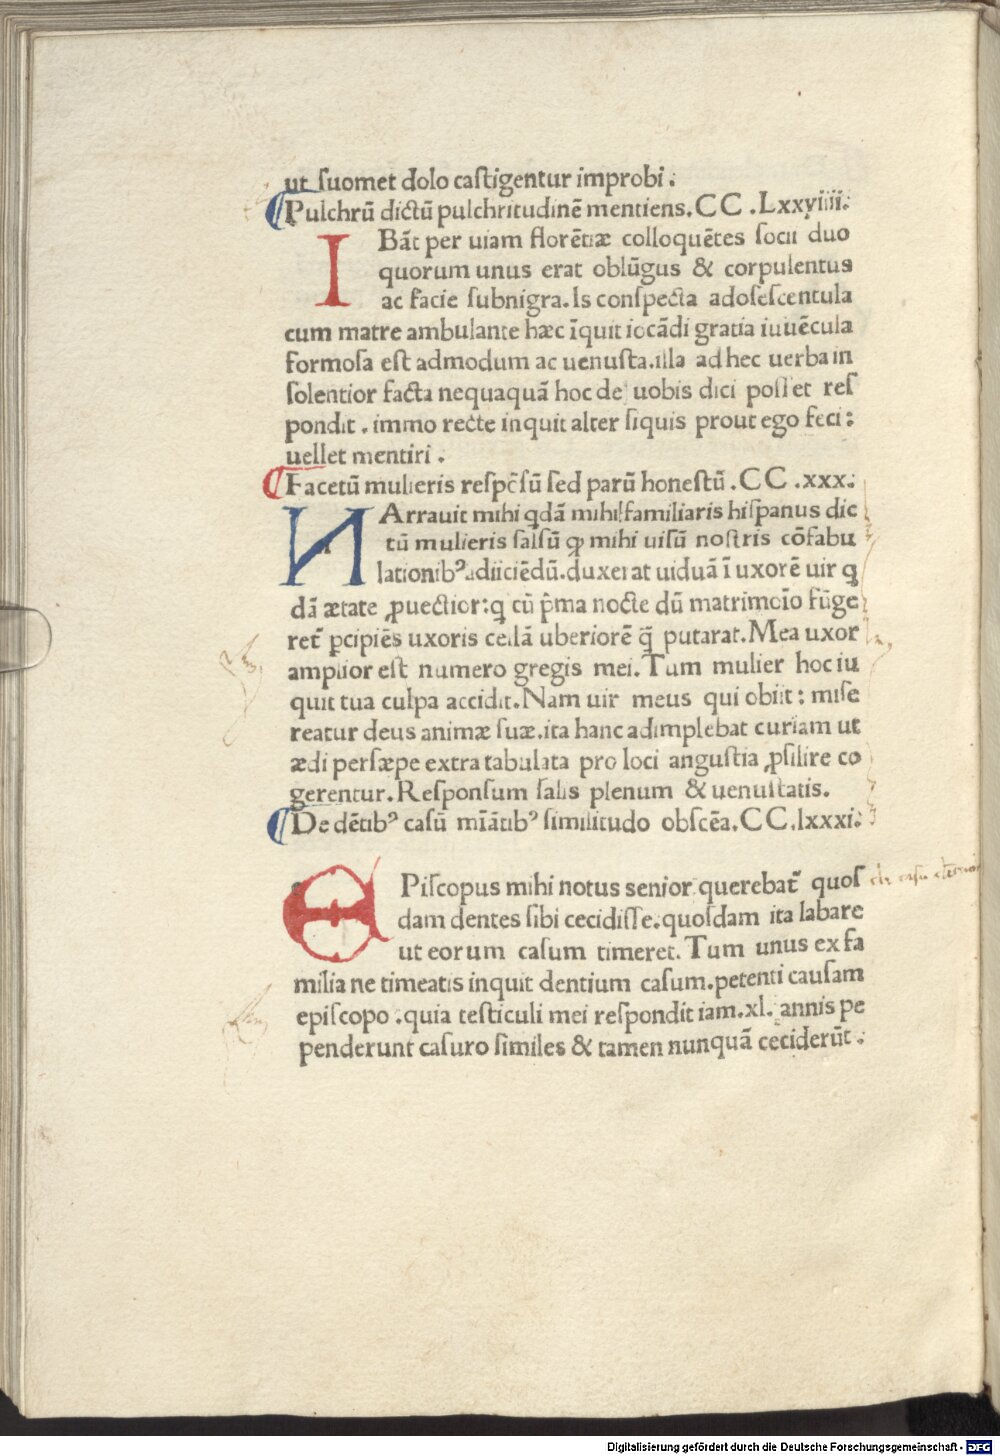 ut suomet dolo castigentur improbi.
Pulchrū dictū pulchritudinē mentiens. CC. Lxxviiii.
IBāt per uiam florētiæ colloquētes socii duo
quorum unus erat oblūgus & corpulentus
ac facie subnigra. Is conspecta adosescentula
cum matre ambulante hæc īquit iocādi gratia iuuēcula
formosa est admodum ac uenusta. illa ad hec uerba in
solentior facta nequaquā hoc de uobis dici posset res
pondit. immo recte inquit alter siquis prout ego feci:
uellet mentiri.
Facetū mulieris respōsū sed parū honestū. CC. xxx.
NArrauit mihi qdā mihi familiaris hispanus dic
tū mulieris salsū ꝙ mihi uisū nostris cōfabu
lationibꝰ adiiciēdū. duxerat uiduā ī uxorē uir q
dā ætate ꝓuectior: q cū p̄ma nocte dū matrimoīo fūge
ret̄ ꝑcipiēs uxoris cellā uberiorē q̄ putarat. Mea uxor
amplior est numero gregis mei. Tum mulier hoc iu
quit tua culpa accidit. Nam uir meus qui obiit: mise
reatur deus animæ suæ. ita hanc adimplebat curiam ut
ædi persæpe extra tabulata pro loci angustia ꝓsilire co
gerentur. Responsum salis plenum & uenustatis.
De dētibꝰ casū mīātibꝰ similitudo obscēa. CC. lxxxi.
EPiscopus mihi notus senior querebat̄ quos
dam dentes sibi cecidisse. quosdam ita labare
ut eorum casum timeret. Tum unus ex fa
milia ne timeatis inquit dentium casum. petenti causam
episcopo. quia testiculi mei respondit iam. xl. annis pe
penderunt casuro similes & tamen nunquā ceciderūt.
Digitalisierung gefördert durch die Deutsche Forschungsgemeinschaft - DFG